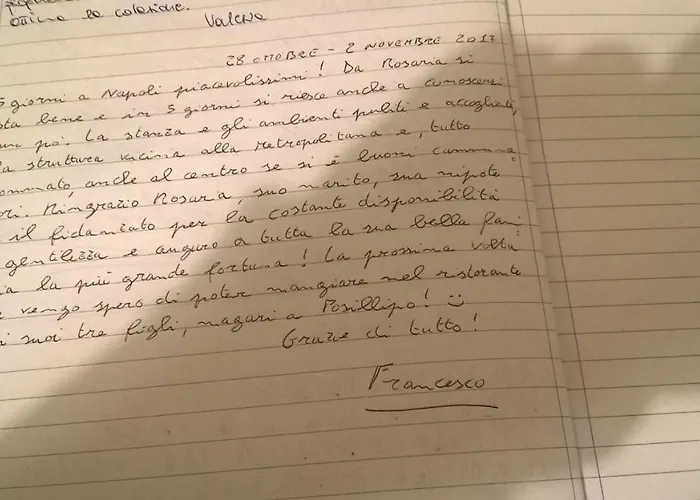 ottima la colazione.
Valeria
28 OTTOBRE - 2 NOVEMBRE 2017
5 giorni a Napoli piacevolissimi! Da Rosaria si
sta bene e in 5 giorni si riesce anche a conoscersi
un po'. La stanza e gli ambienti puliti e accoglienti,
la struttura vicina alla Metropolitana e, tutto
sommato, anche al centro se si è buoni cammina-
ri. Ringrazio Rosaria, suo marito, sua nipote
il fidanzato per la costante disponibilità
gentilezza e auguro a tutta la sua bella fami
ia la più grande fortuna! La prossima volta
vengo spero di poter mangiare nel ristorante
i suoi tre figli, magari a Posillipo! ☺
Grazie di tutto!
Francesco